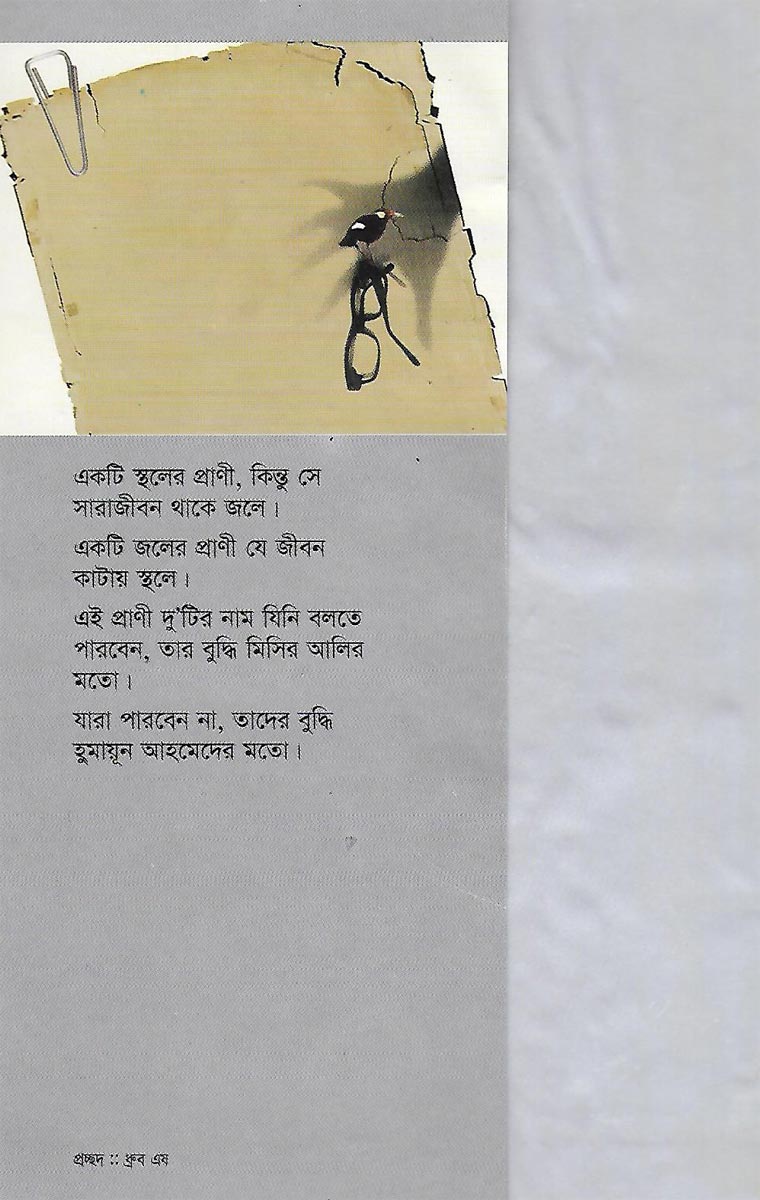 একটি স্থলের প্রাণী, কিন্তু সে
সারাজীবন থাকে জলে।
একটি জলের প্রাণী যে জীবন
কাটায় স্থলে।
এই প্রাণী দু'টির নাম যিনি বলতে
পারবেন, তার বুদ্ধি মিসির আলির
মতো।
যারা পারবেন না, তাদের বুদ্ধি
হুমায়ূন আহমেদের মতো।
প্রচ্ছদ :: ধ্রুব এষ